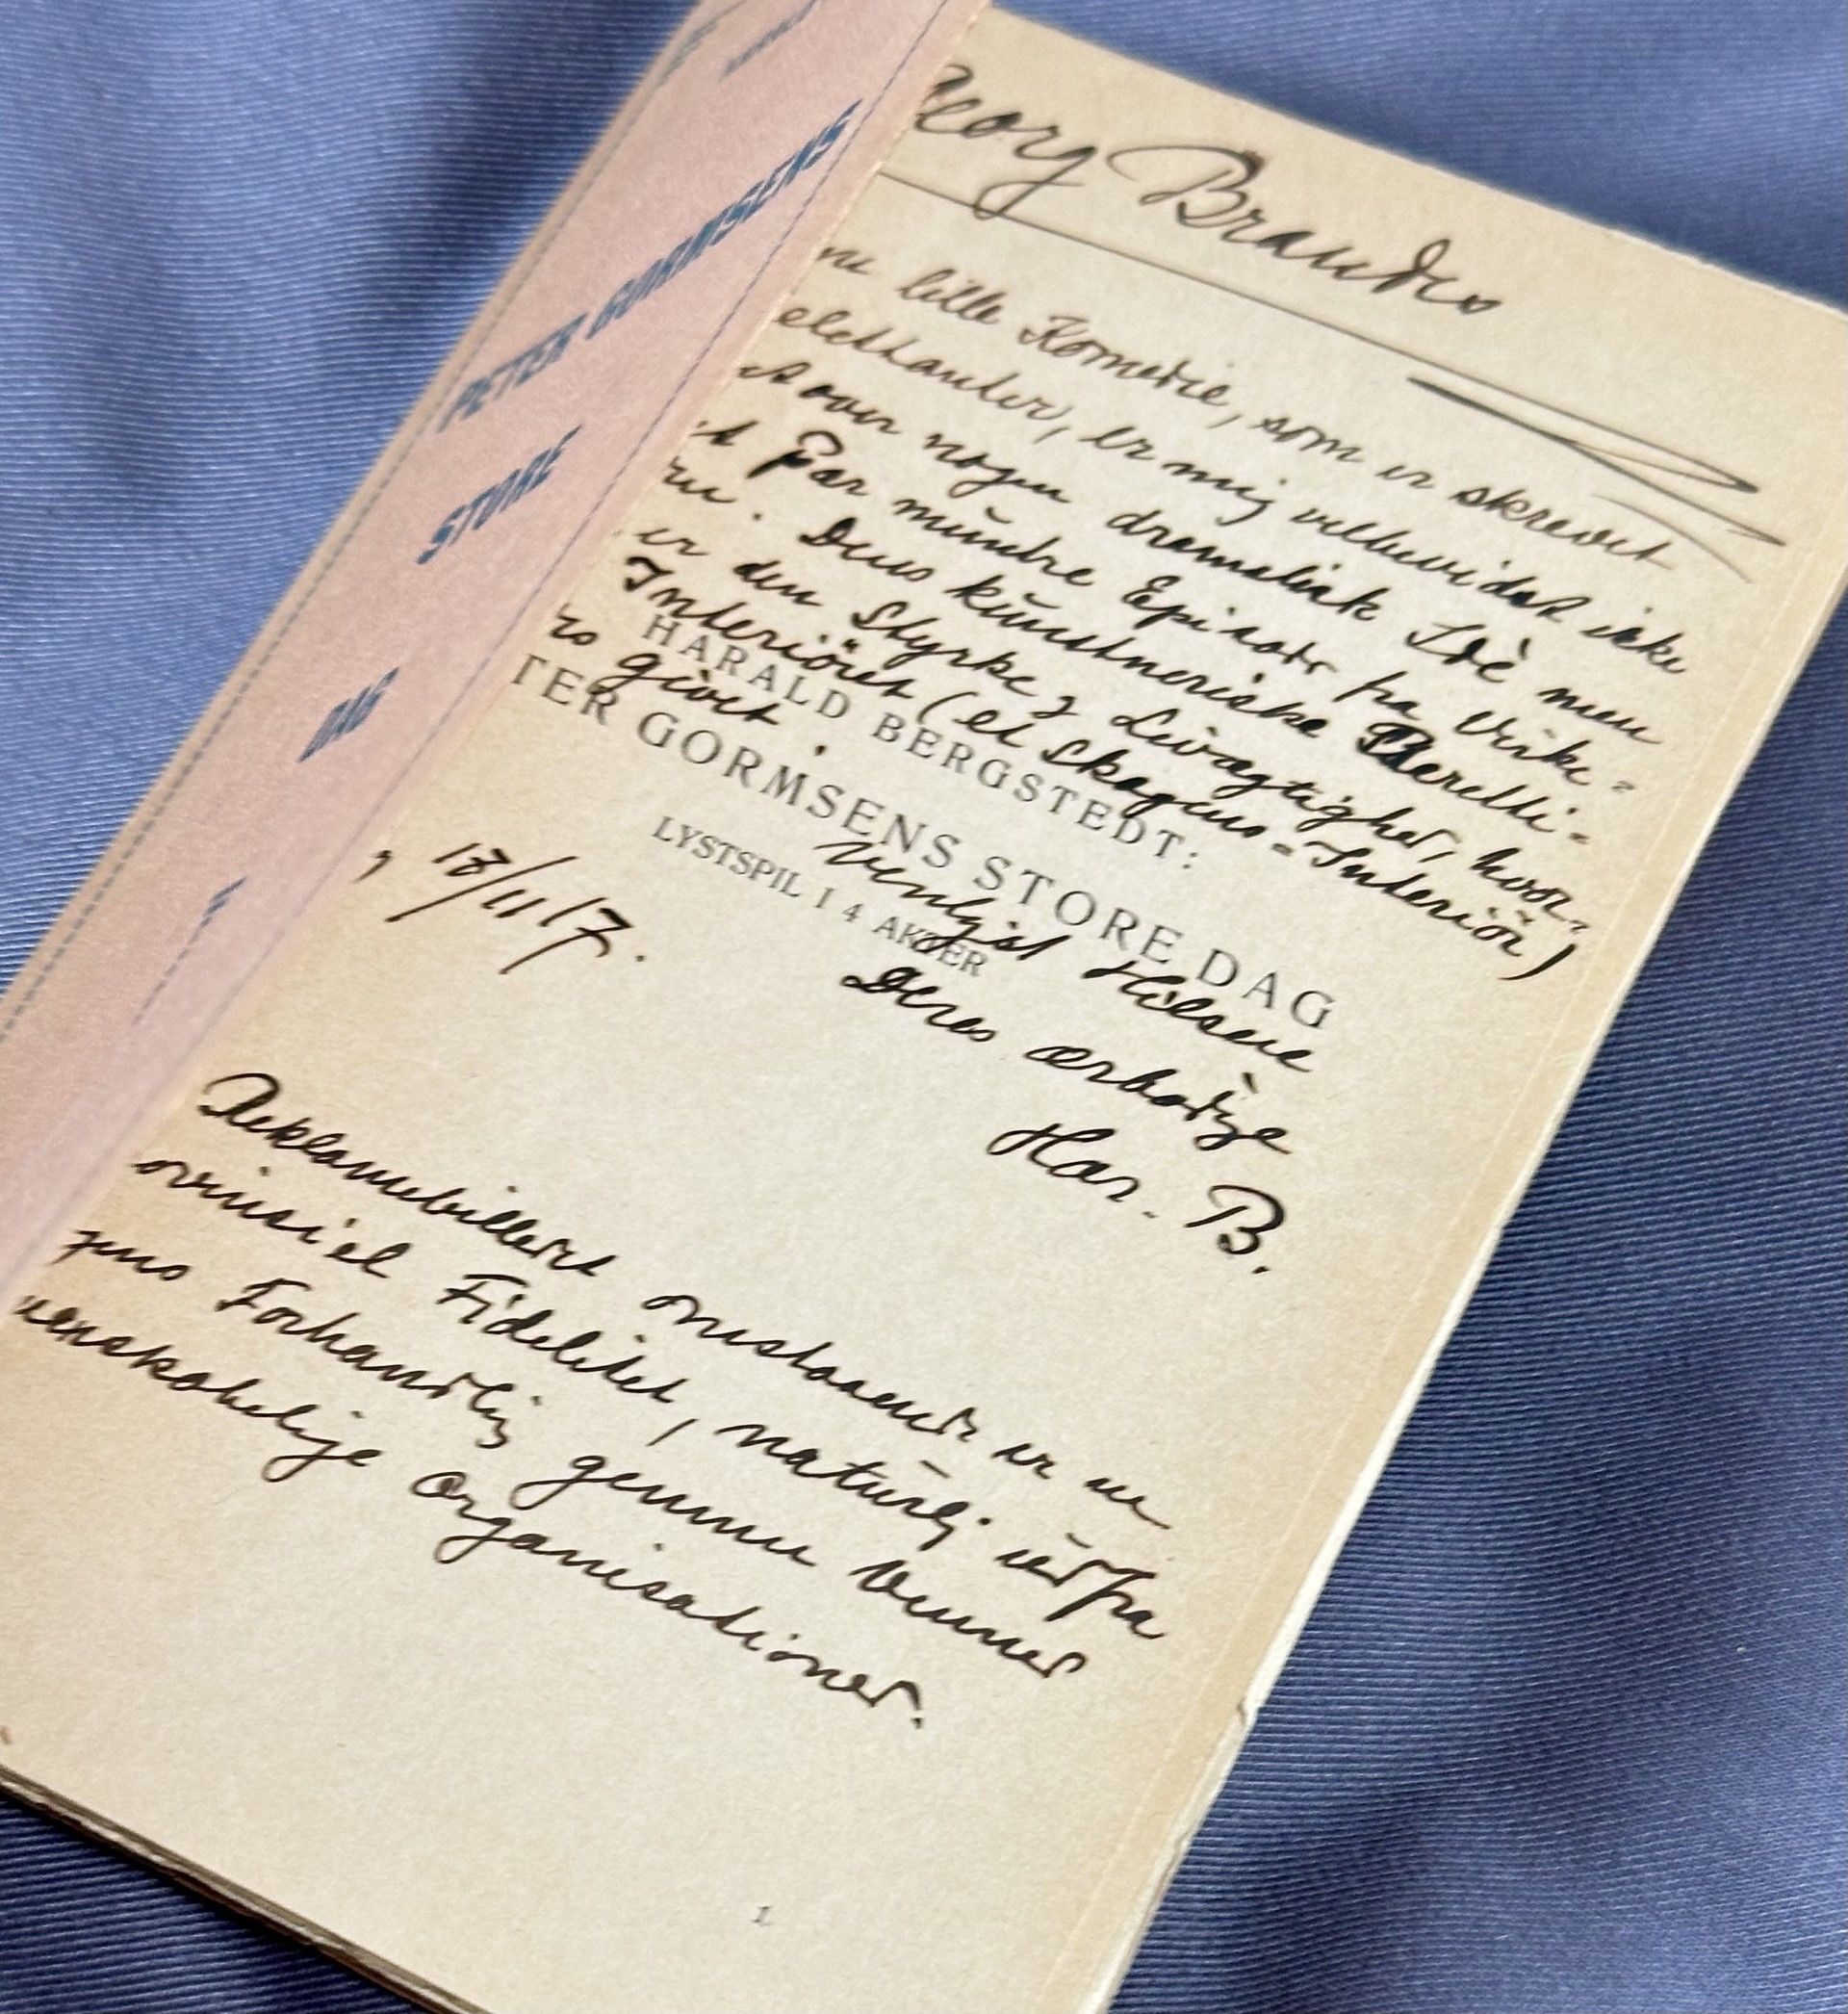 PETER GORMSENS
STORE
DAG
Georg Brandes
lille Komedie, som er skrevet
er mig velbevidst ikke
over nogen dramatisk Idè men
et Par mindre Episoder fra Virke-
Dens kunstneriske Beretti-
er den Styrke & Livagtighed, hvor-
Interiöret (et Skagens-Interiör)
givet.
HARALD BERGSTEDT:
TER GORMSENS STORE DAG
LYSTSPIL I 4 AKTER
Venligst Hilsen
, 18/11 17.
Deres ærbødige
Har. B.
Reklamebilledet ovenstaaende er en
Fidelitet, naturlig udfra
Forhandling gennem Venner
venskabelige organisationer.
1